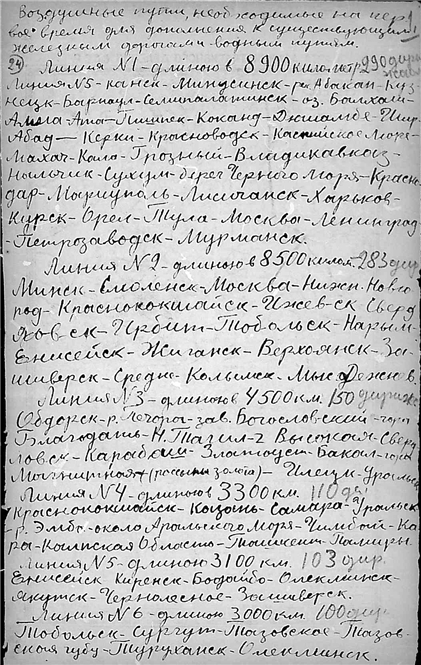 Воздушные пути, необходимые на пер
вое время для дополнения к существующим
железным дорогам и водным путям.
24
Линия N1 - длиною в 8900 километр 290 дирижабл
Линия N5 - Канск - Минусинск - р. Абакан - Куз
нецк - Барнаул - Семипалатинск - оз. Балхаш -
Алма-Ата - Пишпек - Коканд - Дюшамбе - Шир
Абад - Керки - Красноводск - Каспийское Море -
Махач-Кала - Грозный - Владикавказ -
Нальчик - Сухум - берег Черного Моря - Красно
дар - Мариуполь - Лисичанск - Харьков -
Курск - Орел - Тула - Москва - Ленинград
- Петрозаводск - Мурманск.
Линия N2 - длиною в 8500 килом - 283 дир.
Минск - Смоленск - Москва - Нижн. Новго
род - Краснококшайск - Ижевск - Сверд
ловск - Ирбит - Тобольск - Нарым -
Енисейск - Жиганск - Верхоянск - За
шиверск - Средне-Колымск - Мыс Дежнев.
Линия N3 - длиною в 4500 км. 150 дириж
Обдорск - р. Печора - зав. Богословский - гора
Благодать - Н. Тагил - г Высокая - Сверд
ловск - Карабаш - Златоуст - Бакал - гора
Магнитная (россыпи золота) - Илецк - Уральск
Линия N4 - длиною в 3300 км. 110 ди
Краснококшайск - Казань - Самара - Уральск
- р. Эмба - около Аральского Моря - Чимбай - Ка
ра-Калпкская Область - Ташкент - Памиры.
Линия N5 - длиною 3100 км. 103 дир.
Енисейск Киренск - Бодайбо - Олекминск -
Якутск - Чернолесное - Зашиверск.
Линия N6 - длиною 3000 км. 100 дир
Тобольск - Сургут - Тазовское - Тазов-
ская губу - Туруханск - Олекминск.